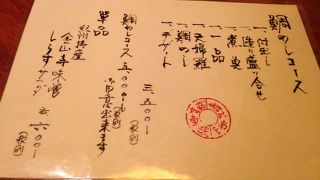 鯛めしコース
一、付出し
一、造り盛り合せ
一、煮魚
一、一品
一、天婦羅
一、鯛めし
一、デザート
三、五〇〇
(税別)
鯛めしコース 五、〇〇〇も
(税別)
御用意出来ます
単品
紀州特産
金山寺味噌
しらすサラダ
六〇〇
(税別)